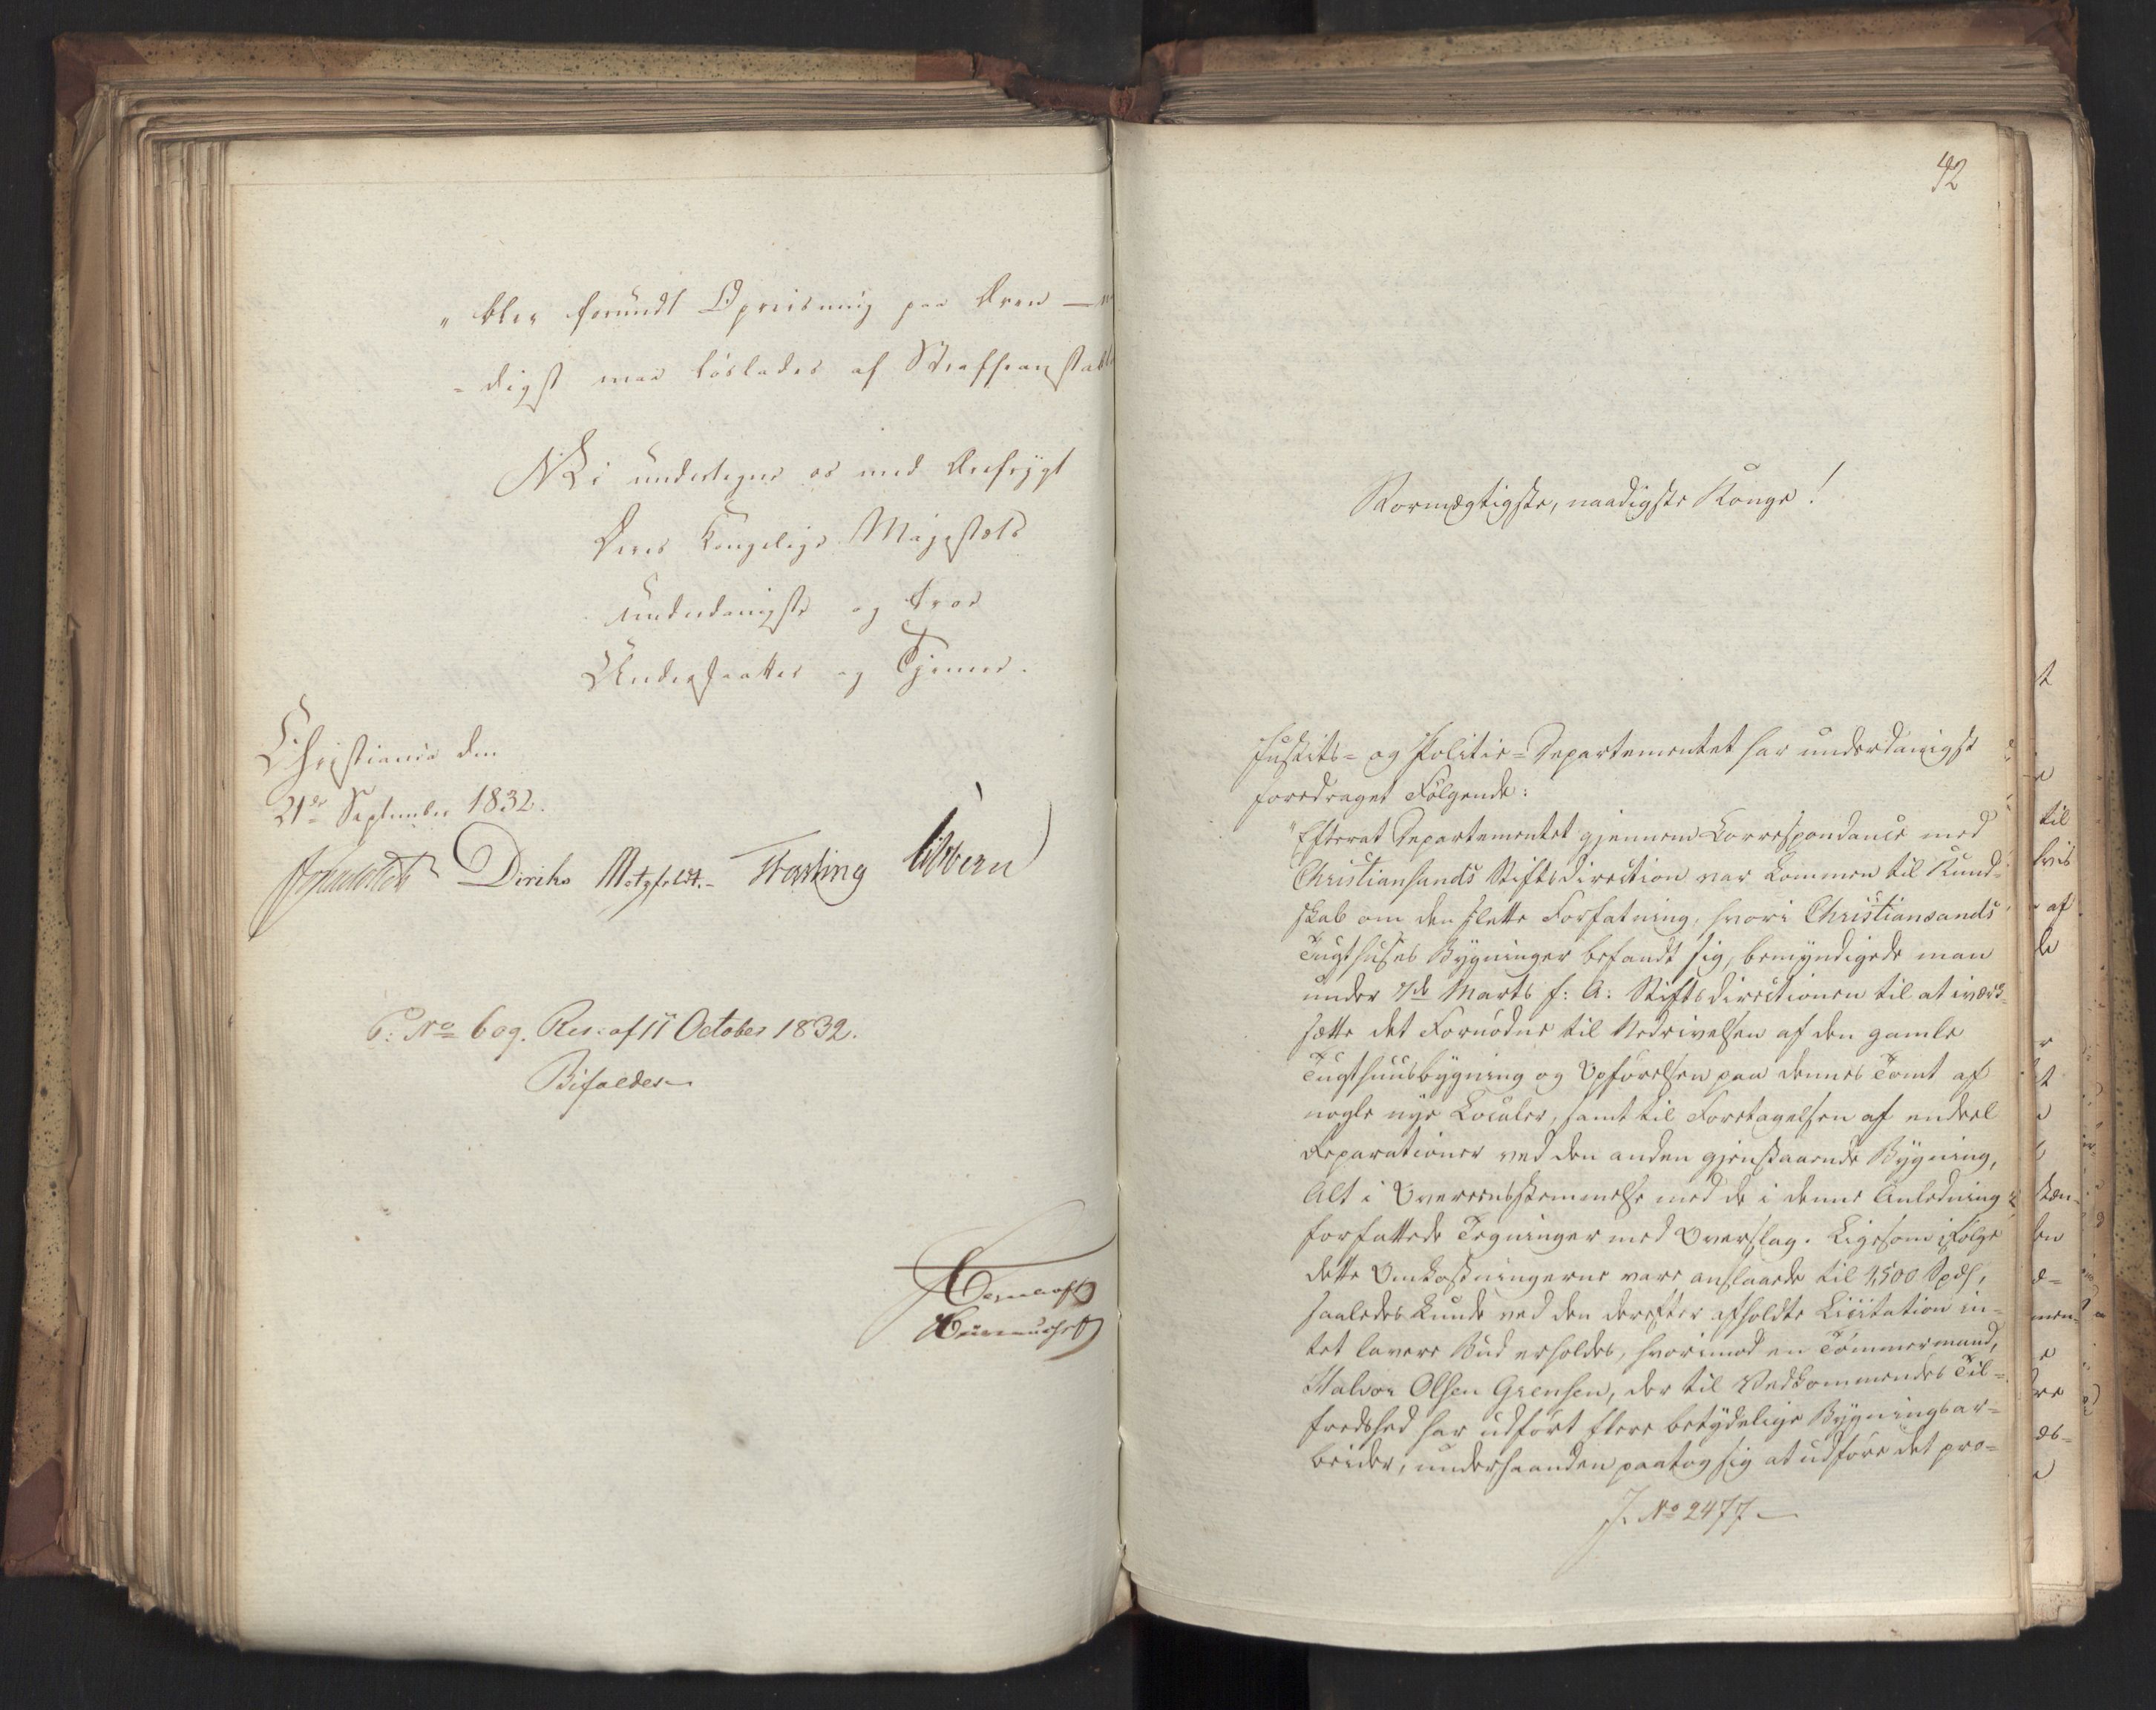 " bler forundt Opreisning paa Æren —
= digst maa löslades af Straffeanstalt
Vi undertegne os med Ærefrygt
Deres Kongelige Majestæts
underdanigste og troe
Undersaatter og Tjenere.
Christiania den
21de September 1832.
Diriks Motzfeldt. Fasting Sibbern
P: No 6 og. Res: af 11 October 1832.
Bifaldes
42
Stormægtigste, naadigste Konge!
Justits= og Politie=Departementet har underdanigst
foredraget Følgende:
"Efterat Departementet gjennem Correspondance med
Christiansands Stiftsdirection var kommen til Kund=
skab om den slette Forfatning, hvori Christiansands
Tugthuses Bygninger befandt sig, bemyndigede man
under 7de Marts f: A: Stiftsdirectionen til at iværk=
sætte det Fornødne til Nedrivelsen af den gamle
Tugthuusbygning og Opførelsen paa dennes Tomt af
nogle nye Localer, samt til Foretagelsen af endeel
Reparationer ved den anden gjenstaaende Bygning,
Alt i Overeensstemmelse med de i denne Anledning
forfattede Tegninger med Overslag. Ligesom ifølge
dette Omkostningerne vare anslaaede til 4,500 Spd,
saaledes kunde ved den derefter afholdte Licitation in=
tet lavere Bud erholdes, hvorimod en Tømmermand,
Halvor Olsen Grensen, der til Vedkommendes Til=
fredshed har udført flere betydelige Bygningsar=
beider, underhaanden paatog sig at udføre det pro=
J. No 2477